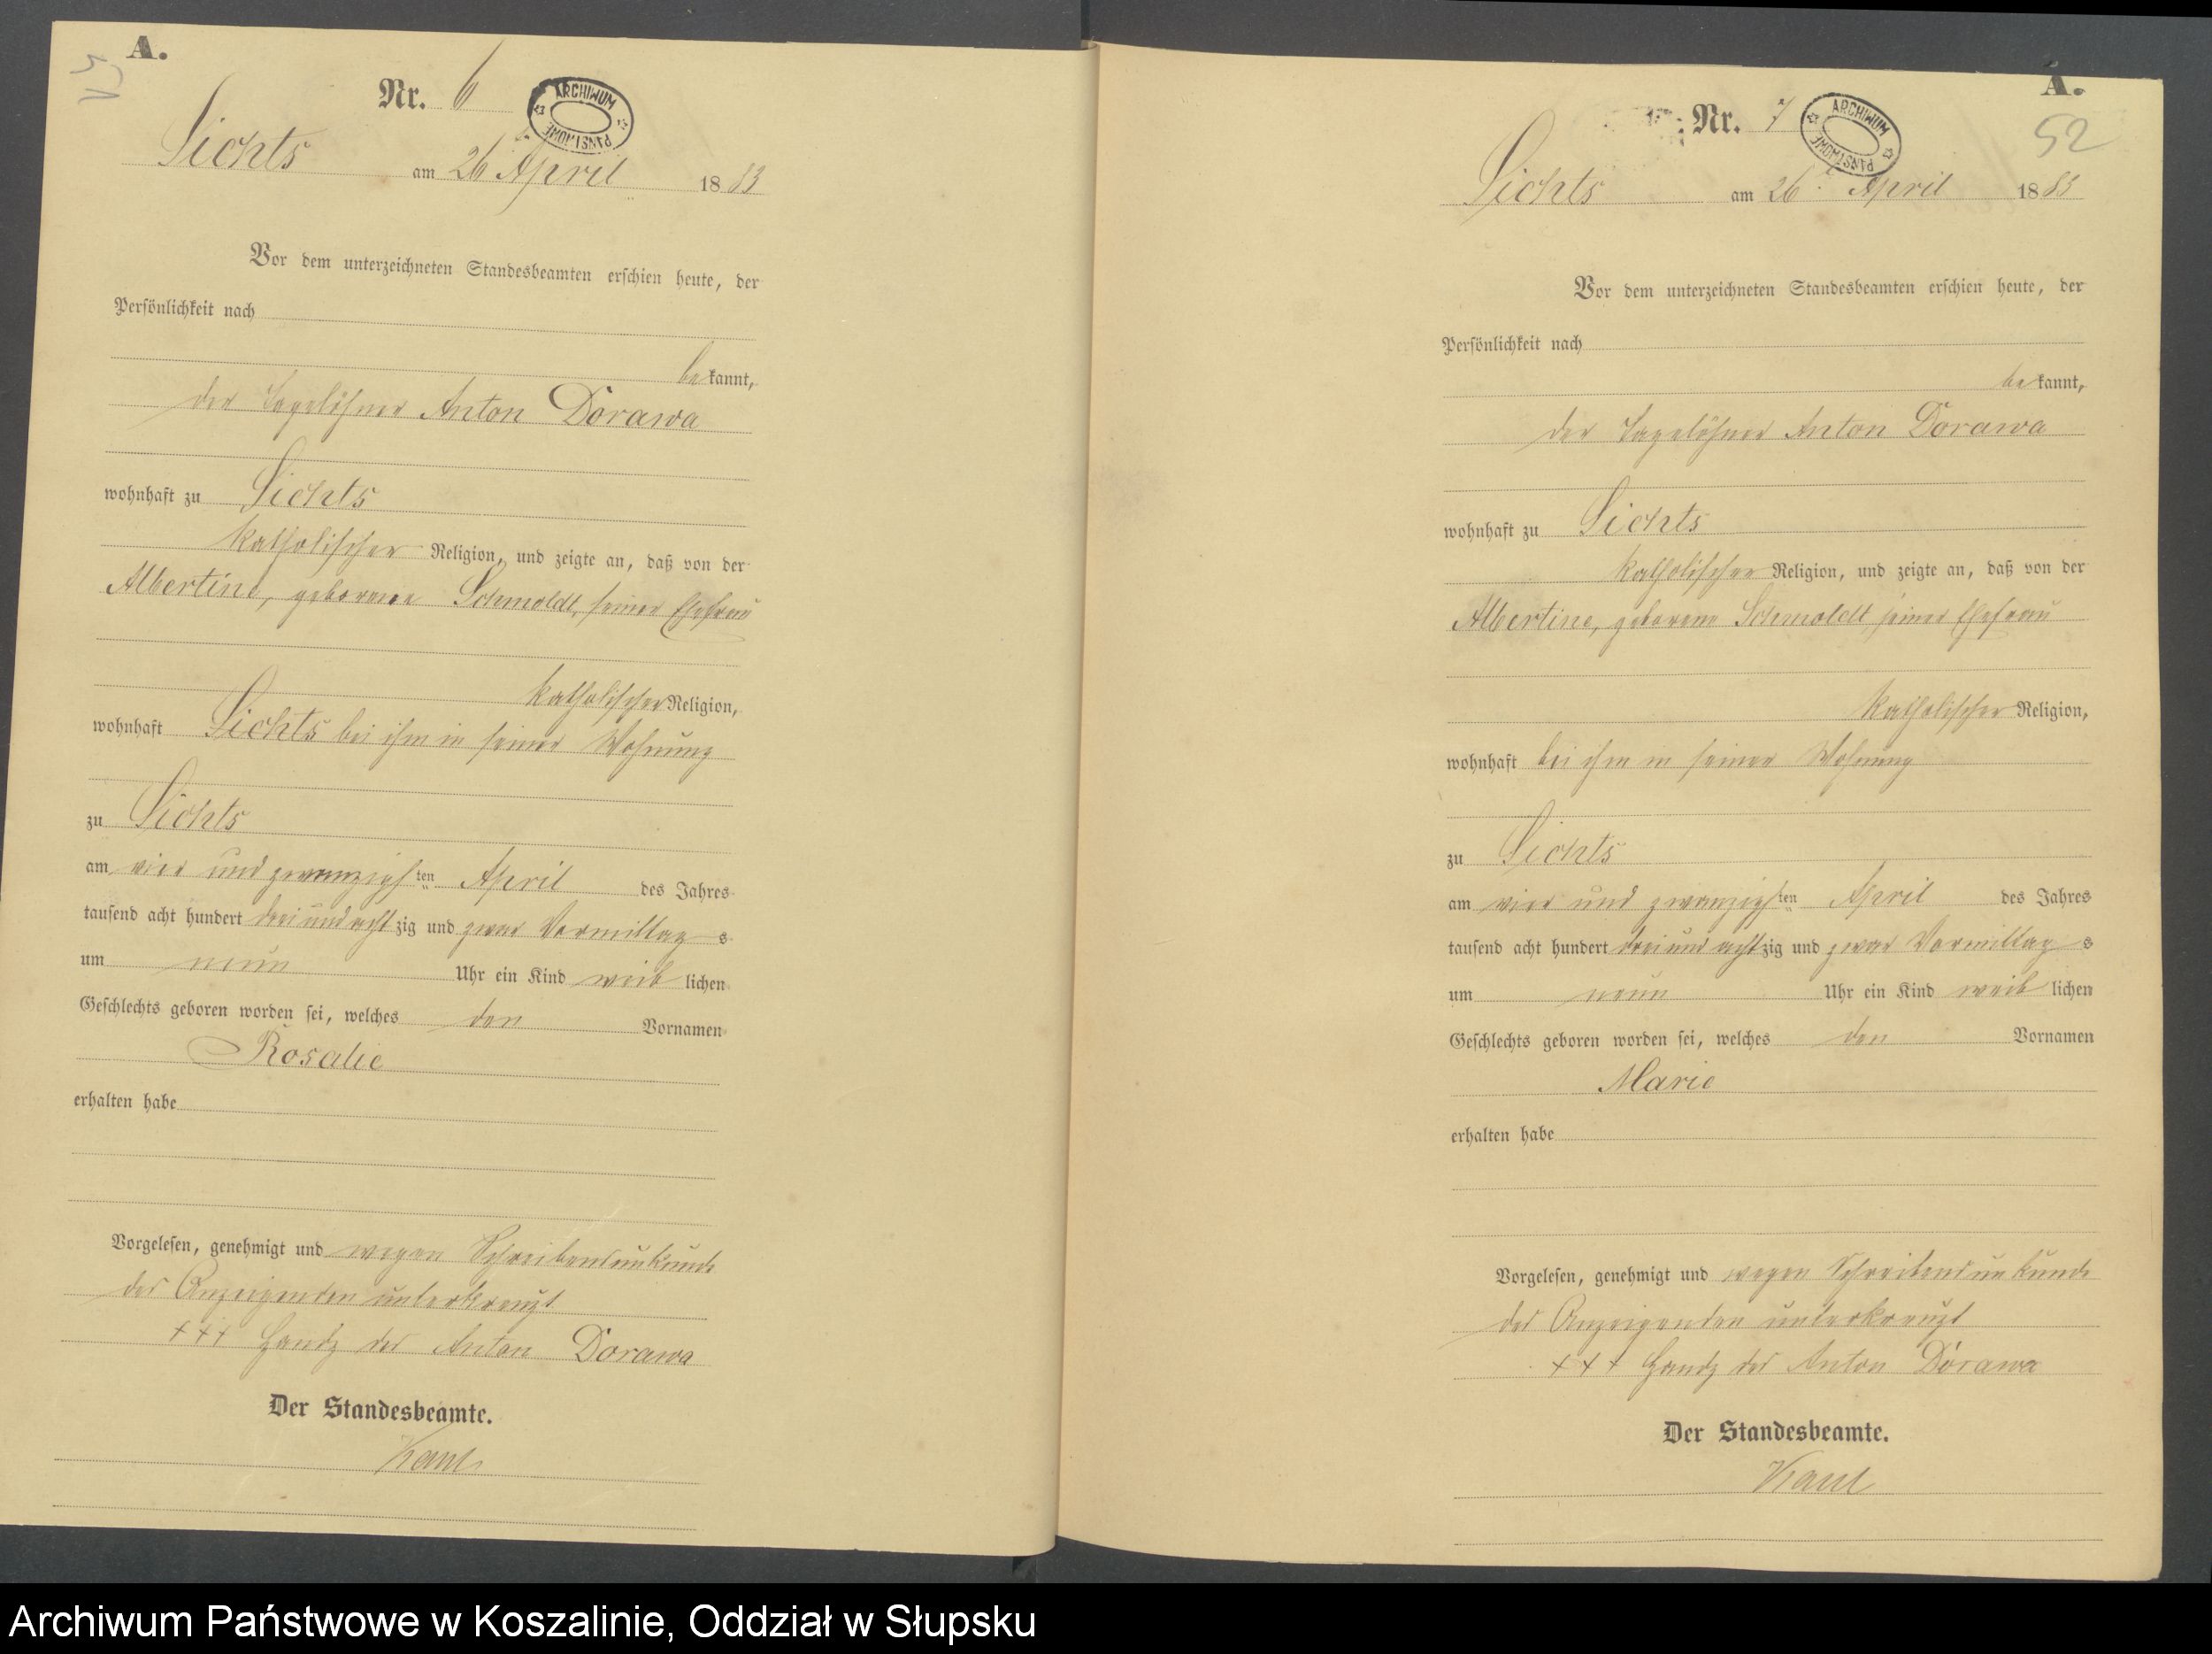 A.
51
Nr. 6
ARCHIWUM PAŃSTWOWE
Lichts am 26ᵗ April 1883
Vor dem unterzeichneten Standesbeamten erschien heute, der
Persönlichkeit nach
bekannt,
der Tagelöhner Anton Dorawa
wohnhaft zu Lichts
katholischer Religion, und zeigte an, daß von der
Albertine, geborene Schmoldt, seiner Ehefrau
katholischer Religion,
wohnhaft Lichts bei ihm in seiner Wohnung
zu Lichts
am vier und zwanzigsten April des Jahres
tausend acht hundert drei und achtzig und zwar Vormittags
um neun Uhr ein Kind weiblichen
Geschlechts geboren worden sei, welches den Vornamen
Rosalie
erhalten habe
Vorgelesen, genehmigt und wegen Schreibensunkunde
des Anzeigenden unterkreuzt
+++ Handz des Anton Dorawa
Der Standesbeamte.
A.
52
Nr. 7
ARCHIWUM PAŃSTWOWE
Lichts am 26ᵗ April 1883
Vor dem unterzeichneten Standesbeamten erschien heute, der
Persönlichkeit nach
bekannt,
der Tagelöhner Anton Dorawa
wohnhaft zu Lichts
katholischer Religion, und zeigte an, daß von der
Albertine, geborene Schmoldt seiner Ehefrau
katholischer Religion,
wohnhaft bei ihm in seiner Wohnung
zu Lichts
am vier und zwanzigsten April des Jahres
tausend acht hundert drei und achtzig und zwar Vormittags
um neun Uhr ein Kind weiblichen
Geschlechts geboren worden sei, welches den Vornamen
Marie
erhalten habe
Vorgelesen, genehmigt und wegen Schreibensunkunde
des Anzeigenden unterkreuzt
+++ Handz des Anton Dorawa
Der Standesbeamte.
Archiwum Państwowe w Koszalinie, Oddział w Słupsku